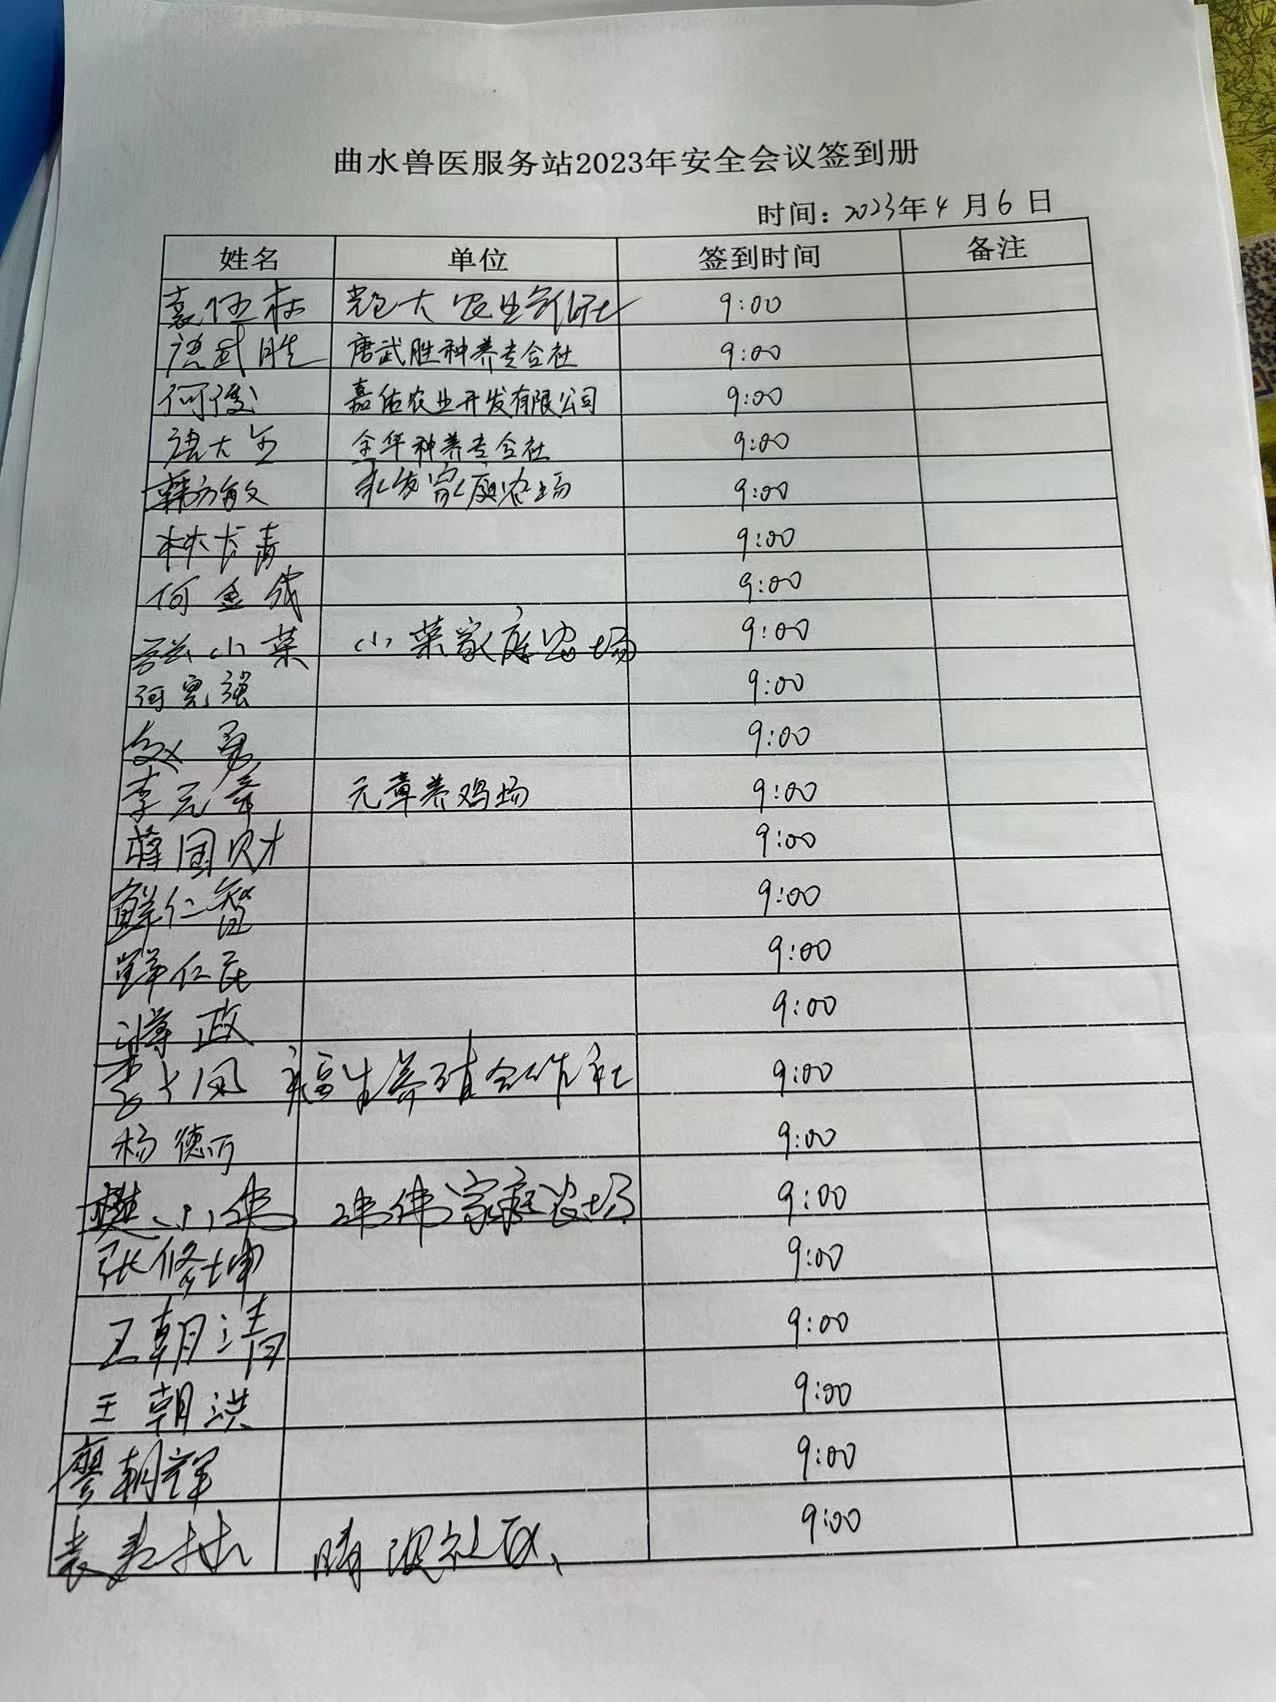 曲水兽医服务站2023年安全会议签到册
时间：2023年4月6日
姓名 单位 签到时间 备注
袁恒林 农业合作社 9:00
唐武胜 唐武胜种养专合社 9:00
何俊 嘉佑农业开发有限公司 9:00
唐大全 全华种养专合社 9:00
韩方敏 永发家庭农场 9:00
林长青 9:00
何金成 9:00
小菜 小菜家庭农场 9:00
何宪强 9:00
赵勇 9:00
李元章 元章养鸡场 9:00
蒋国财 9:00
鲜仁智 9:00
鲜仁 9:00
政 9:00
李 凤 福生养殖合作社 9:00
杨德万 9:00
樊小伟 伟伟家庭农场 9:00
张修坤 9:00
王朝清 9:00
王朝洪 9:00
廖朝辉 9:00
袁 社区 9:00